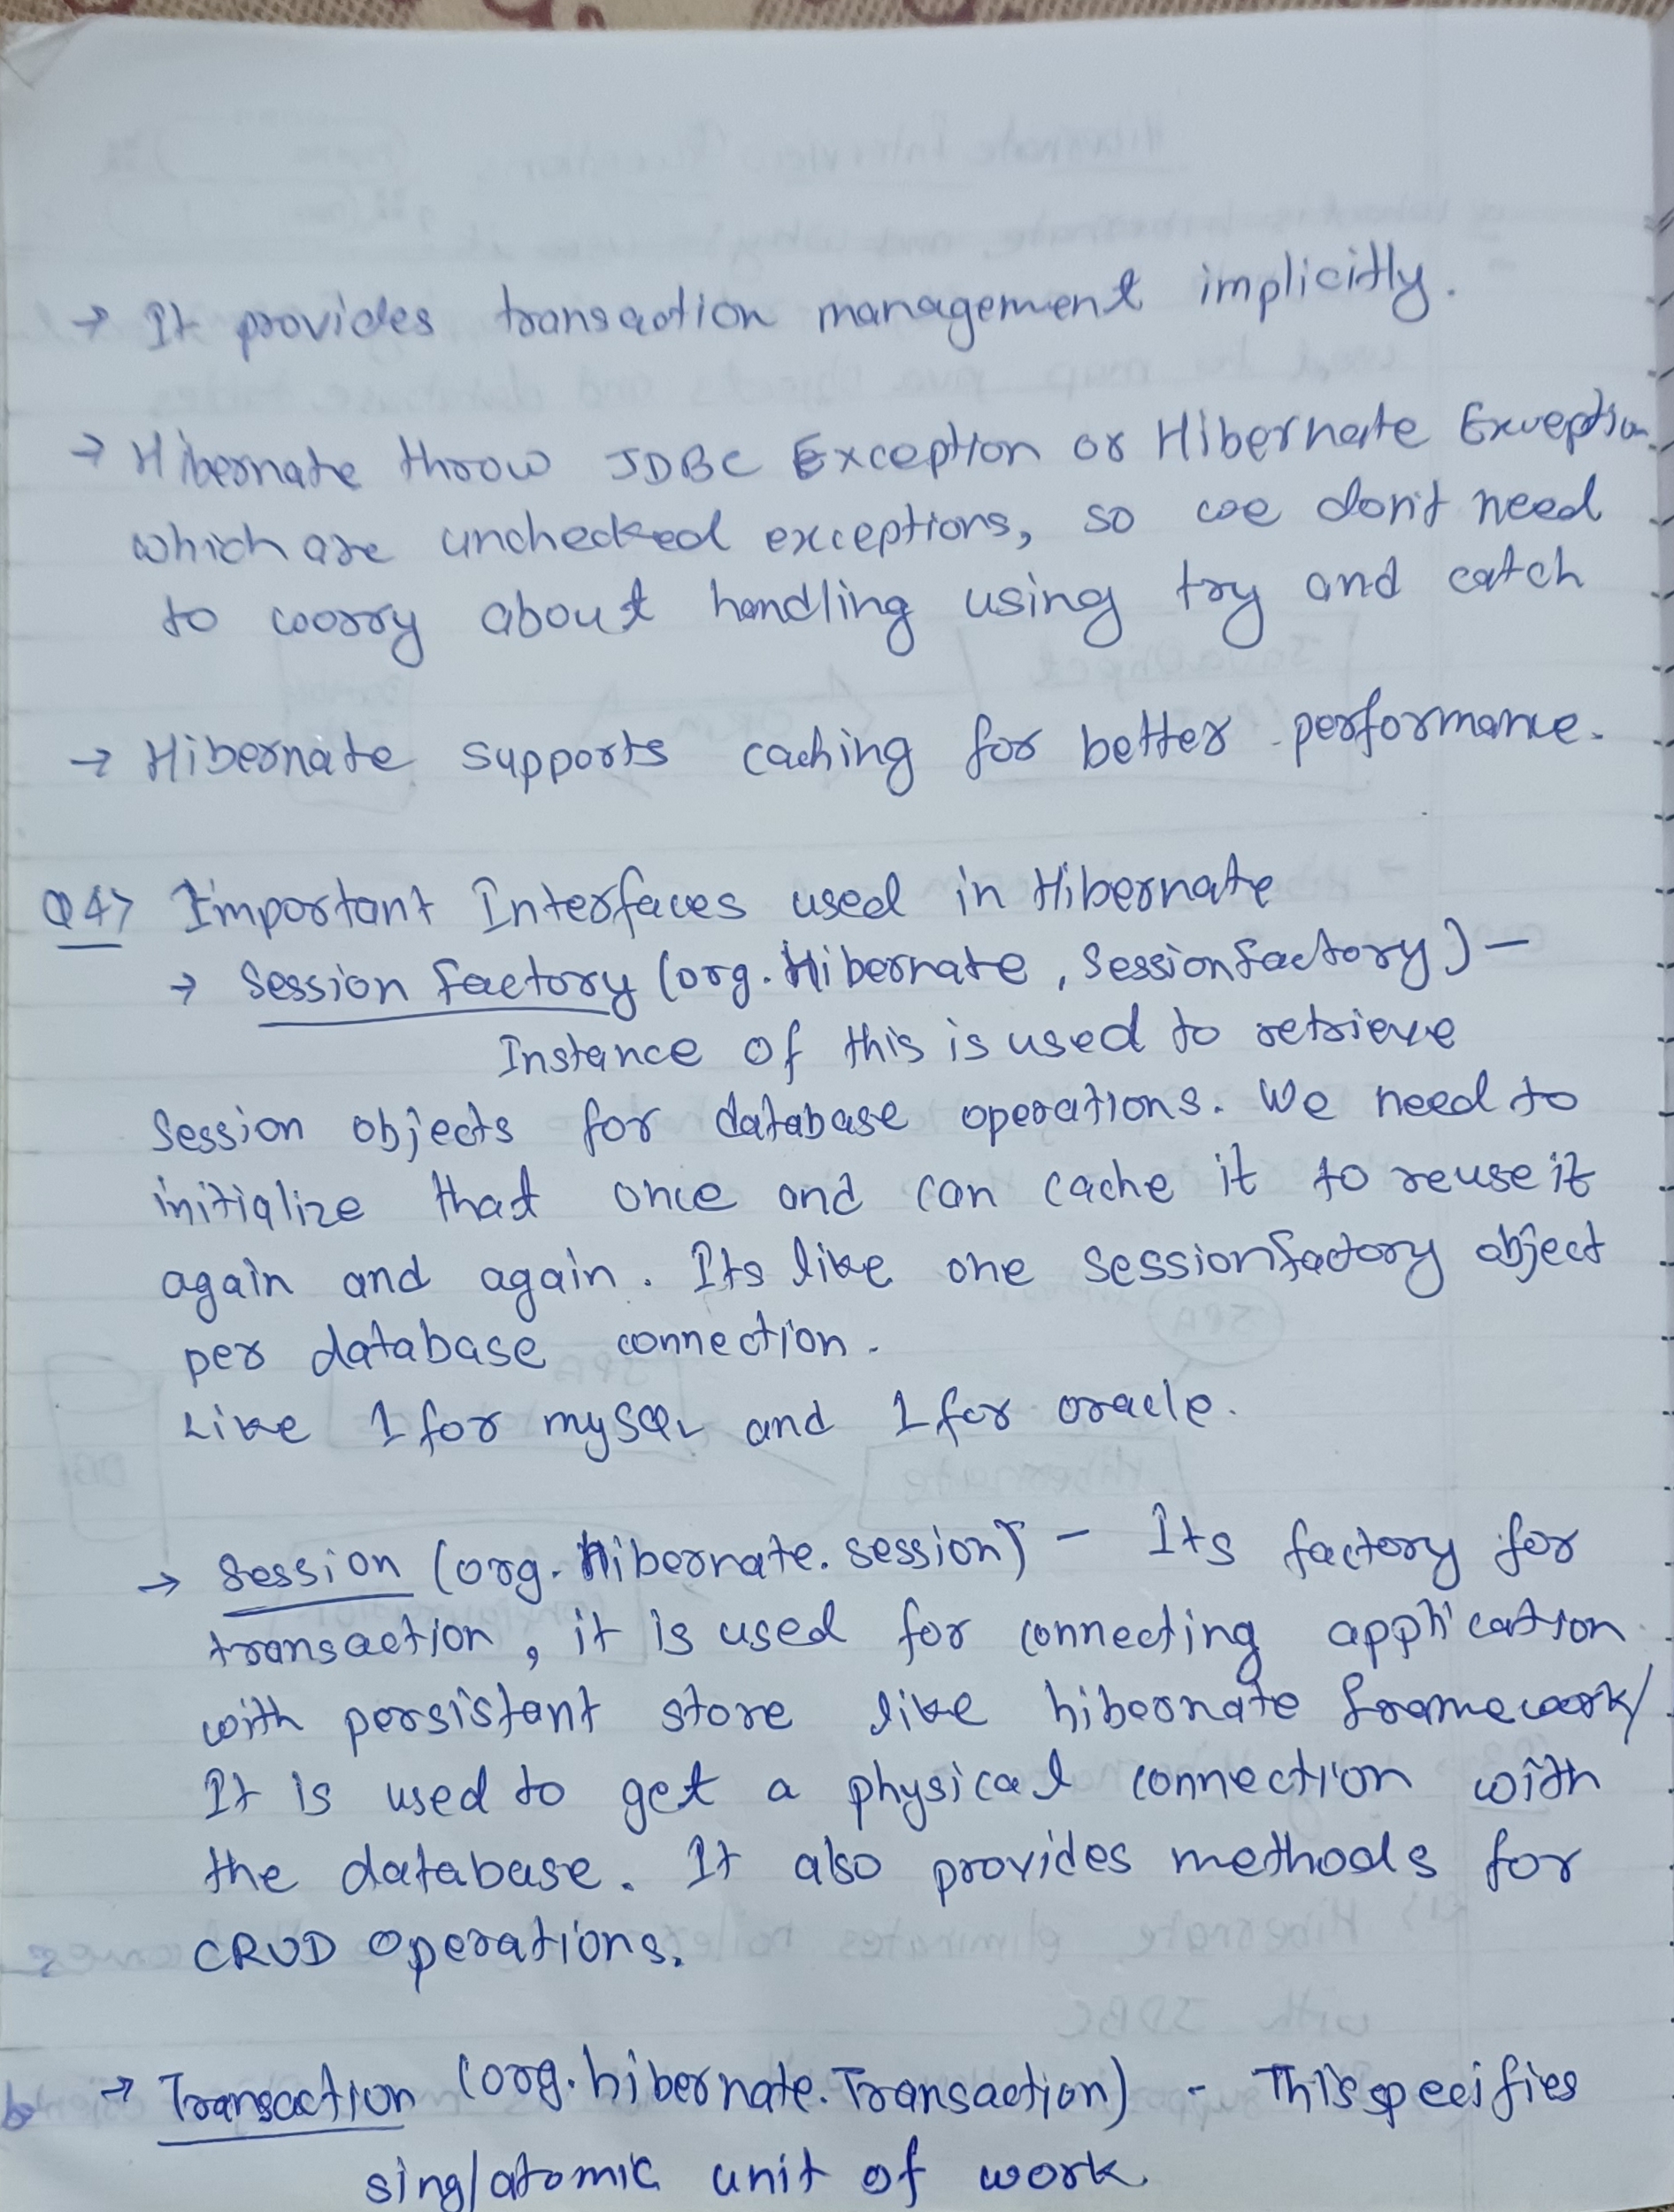 → It provides transaction management implicitly.
→ Hibernate throw JDBC Exception or Hibernate Exception
which are unchecked exceptions, so we don't need
to worry about handling using try and catch
→ Hibernate supports caching for better performance.
Q4> Important Interfaces used in Hibernate
→ Session factory (org.Hibernate, Sessionfactory) -
Instance of this is used to retrieve
Session objects for database operations. We need to
initialize that once and can cache it to reuse it
again and again. Its like one sessionfactory object
per database connection.
Like 1 for mySQL and 1 for oracle.
→ Session (org.hibernate.session) - Its factory for
transaction, it is used for connecting application
with persistant store like hibernate framework/
It is used to get a physical connection with
the database. It also provides methods for
CRUD operations.
→ Transaction (org.hibernate.Transaction) - This specifies
singl/atomic unit of work.